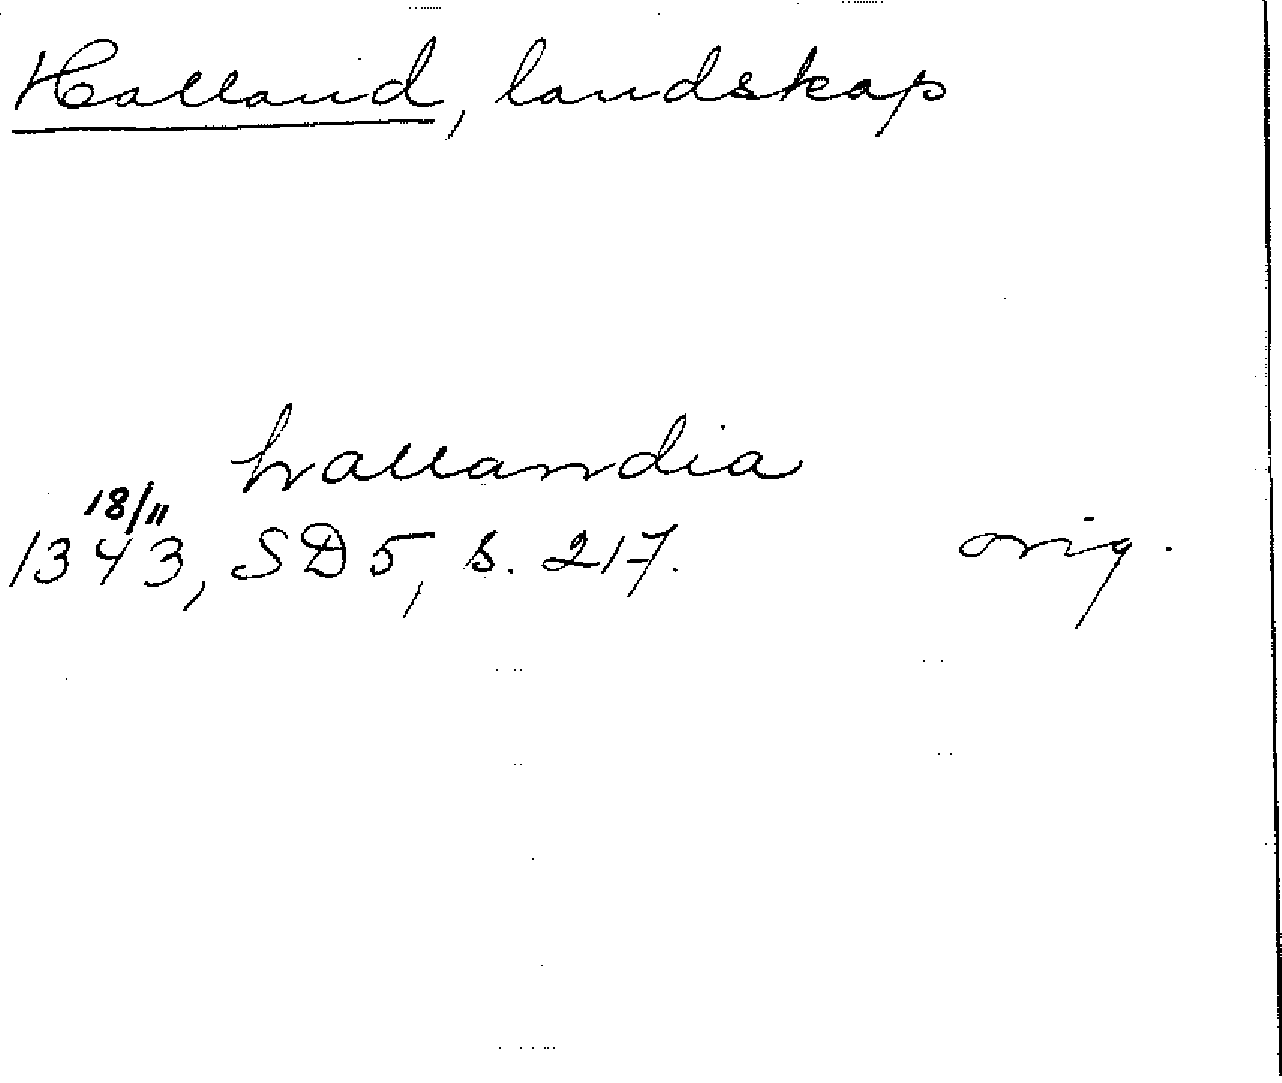 Halland, landskap
hallandia
18/11
1343, SD 5, s. 217. orig.